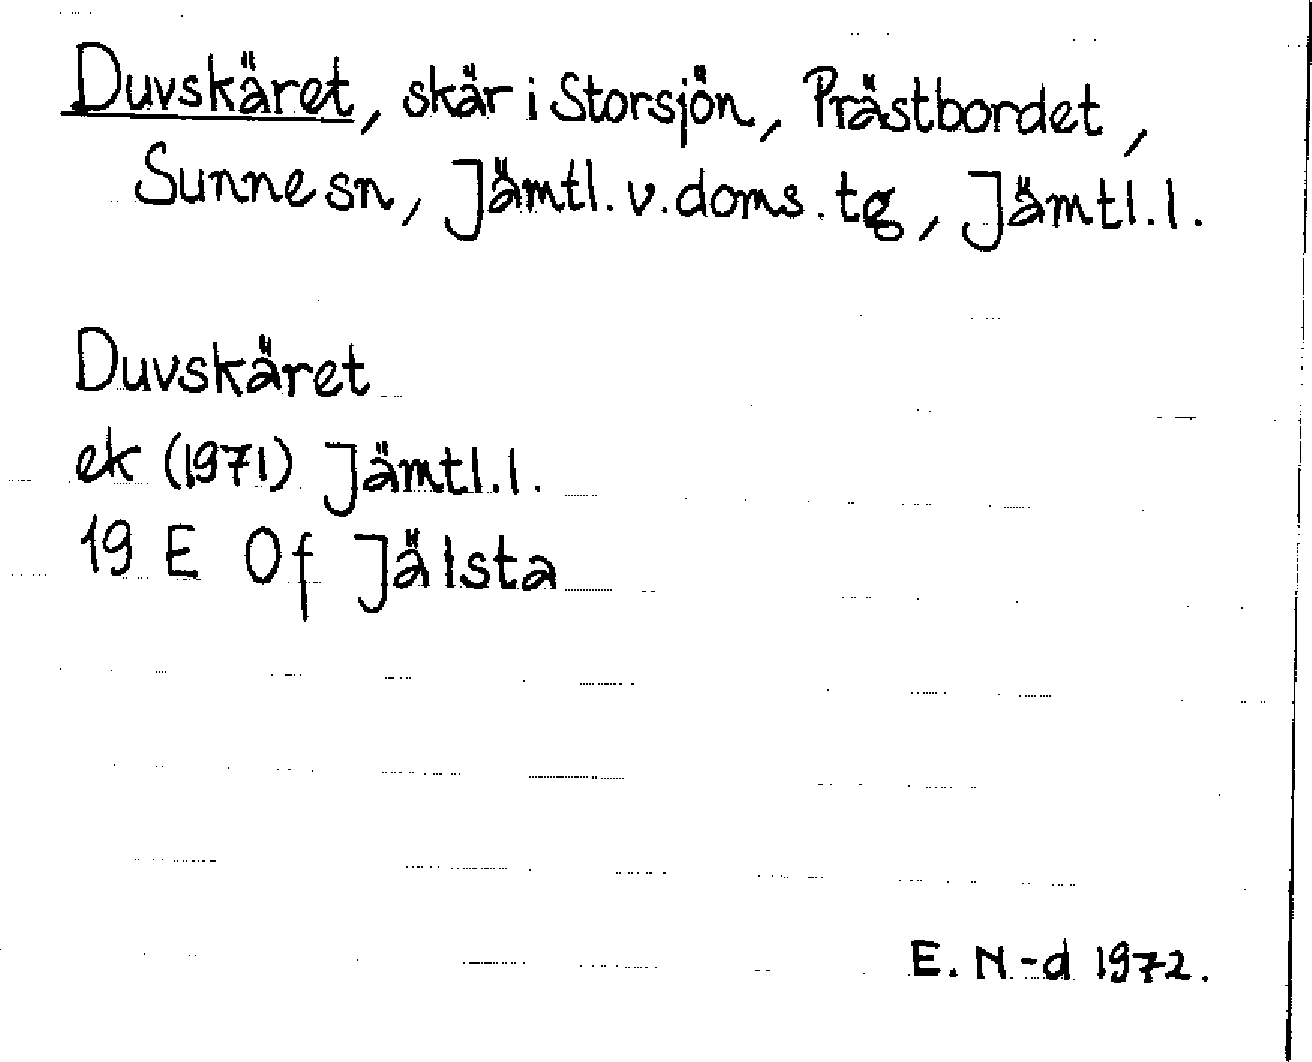 Duvskäret, skär i Storsjön, Prästbordet,
Sunne sn, Jämtl. v. doms. tg, Jämtl. l.
Duvskäret
ek (1971) Jämtl. l.
19 E 0f Jälsta
E. N-d 1972.